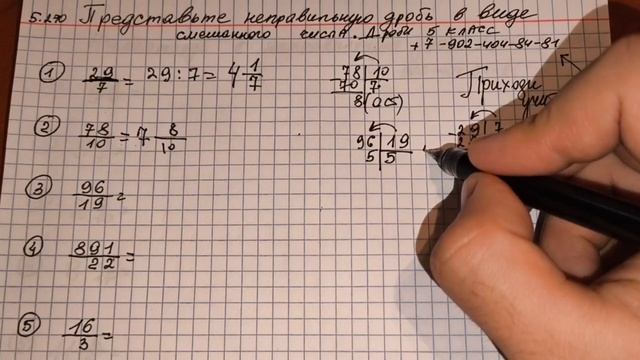 5.270 Представьте неправильную дробь в виде
смешанного числа. Дроби 5 класс
+7-902-404-84-81
① 29/7 = 29:7 = 4 1/7
78 | 10
70 | 7
8 (ост)
Приходи
② 78/10 = 7 8/10
96 | 19
5 | 5
29 | 7
③ 96/19 =
④ 891/22 =
⑤ 16/3 =